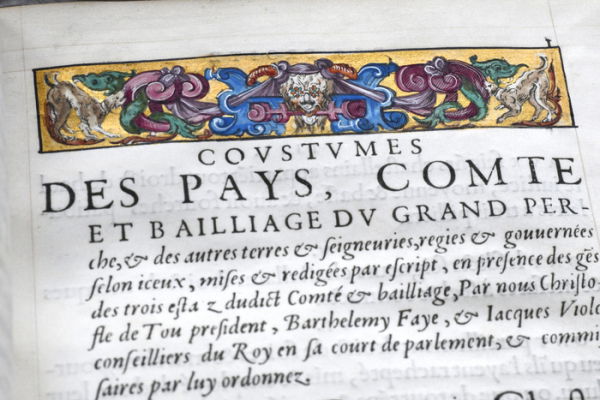 COVSTVMES
DES PAYS, COMTE
ET BAILLIAGE DV GRAND PER-
che, & des autres terres & seigneuries, regies & gouuernées
selon iceux, mises & redigées par escript, en presence des gẽs
des trois esta z dudict Comté & bailliage, Par nous Christo-
fle de Tou president, Barthelemy Faye, & Iacques Viole
conseilliers du Roy en sa court de parlement, & commi
saires par luy ordonnez.